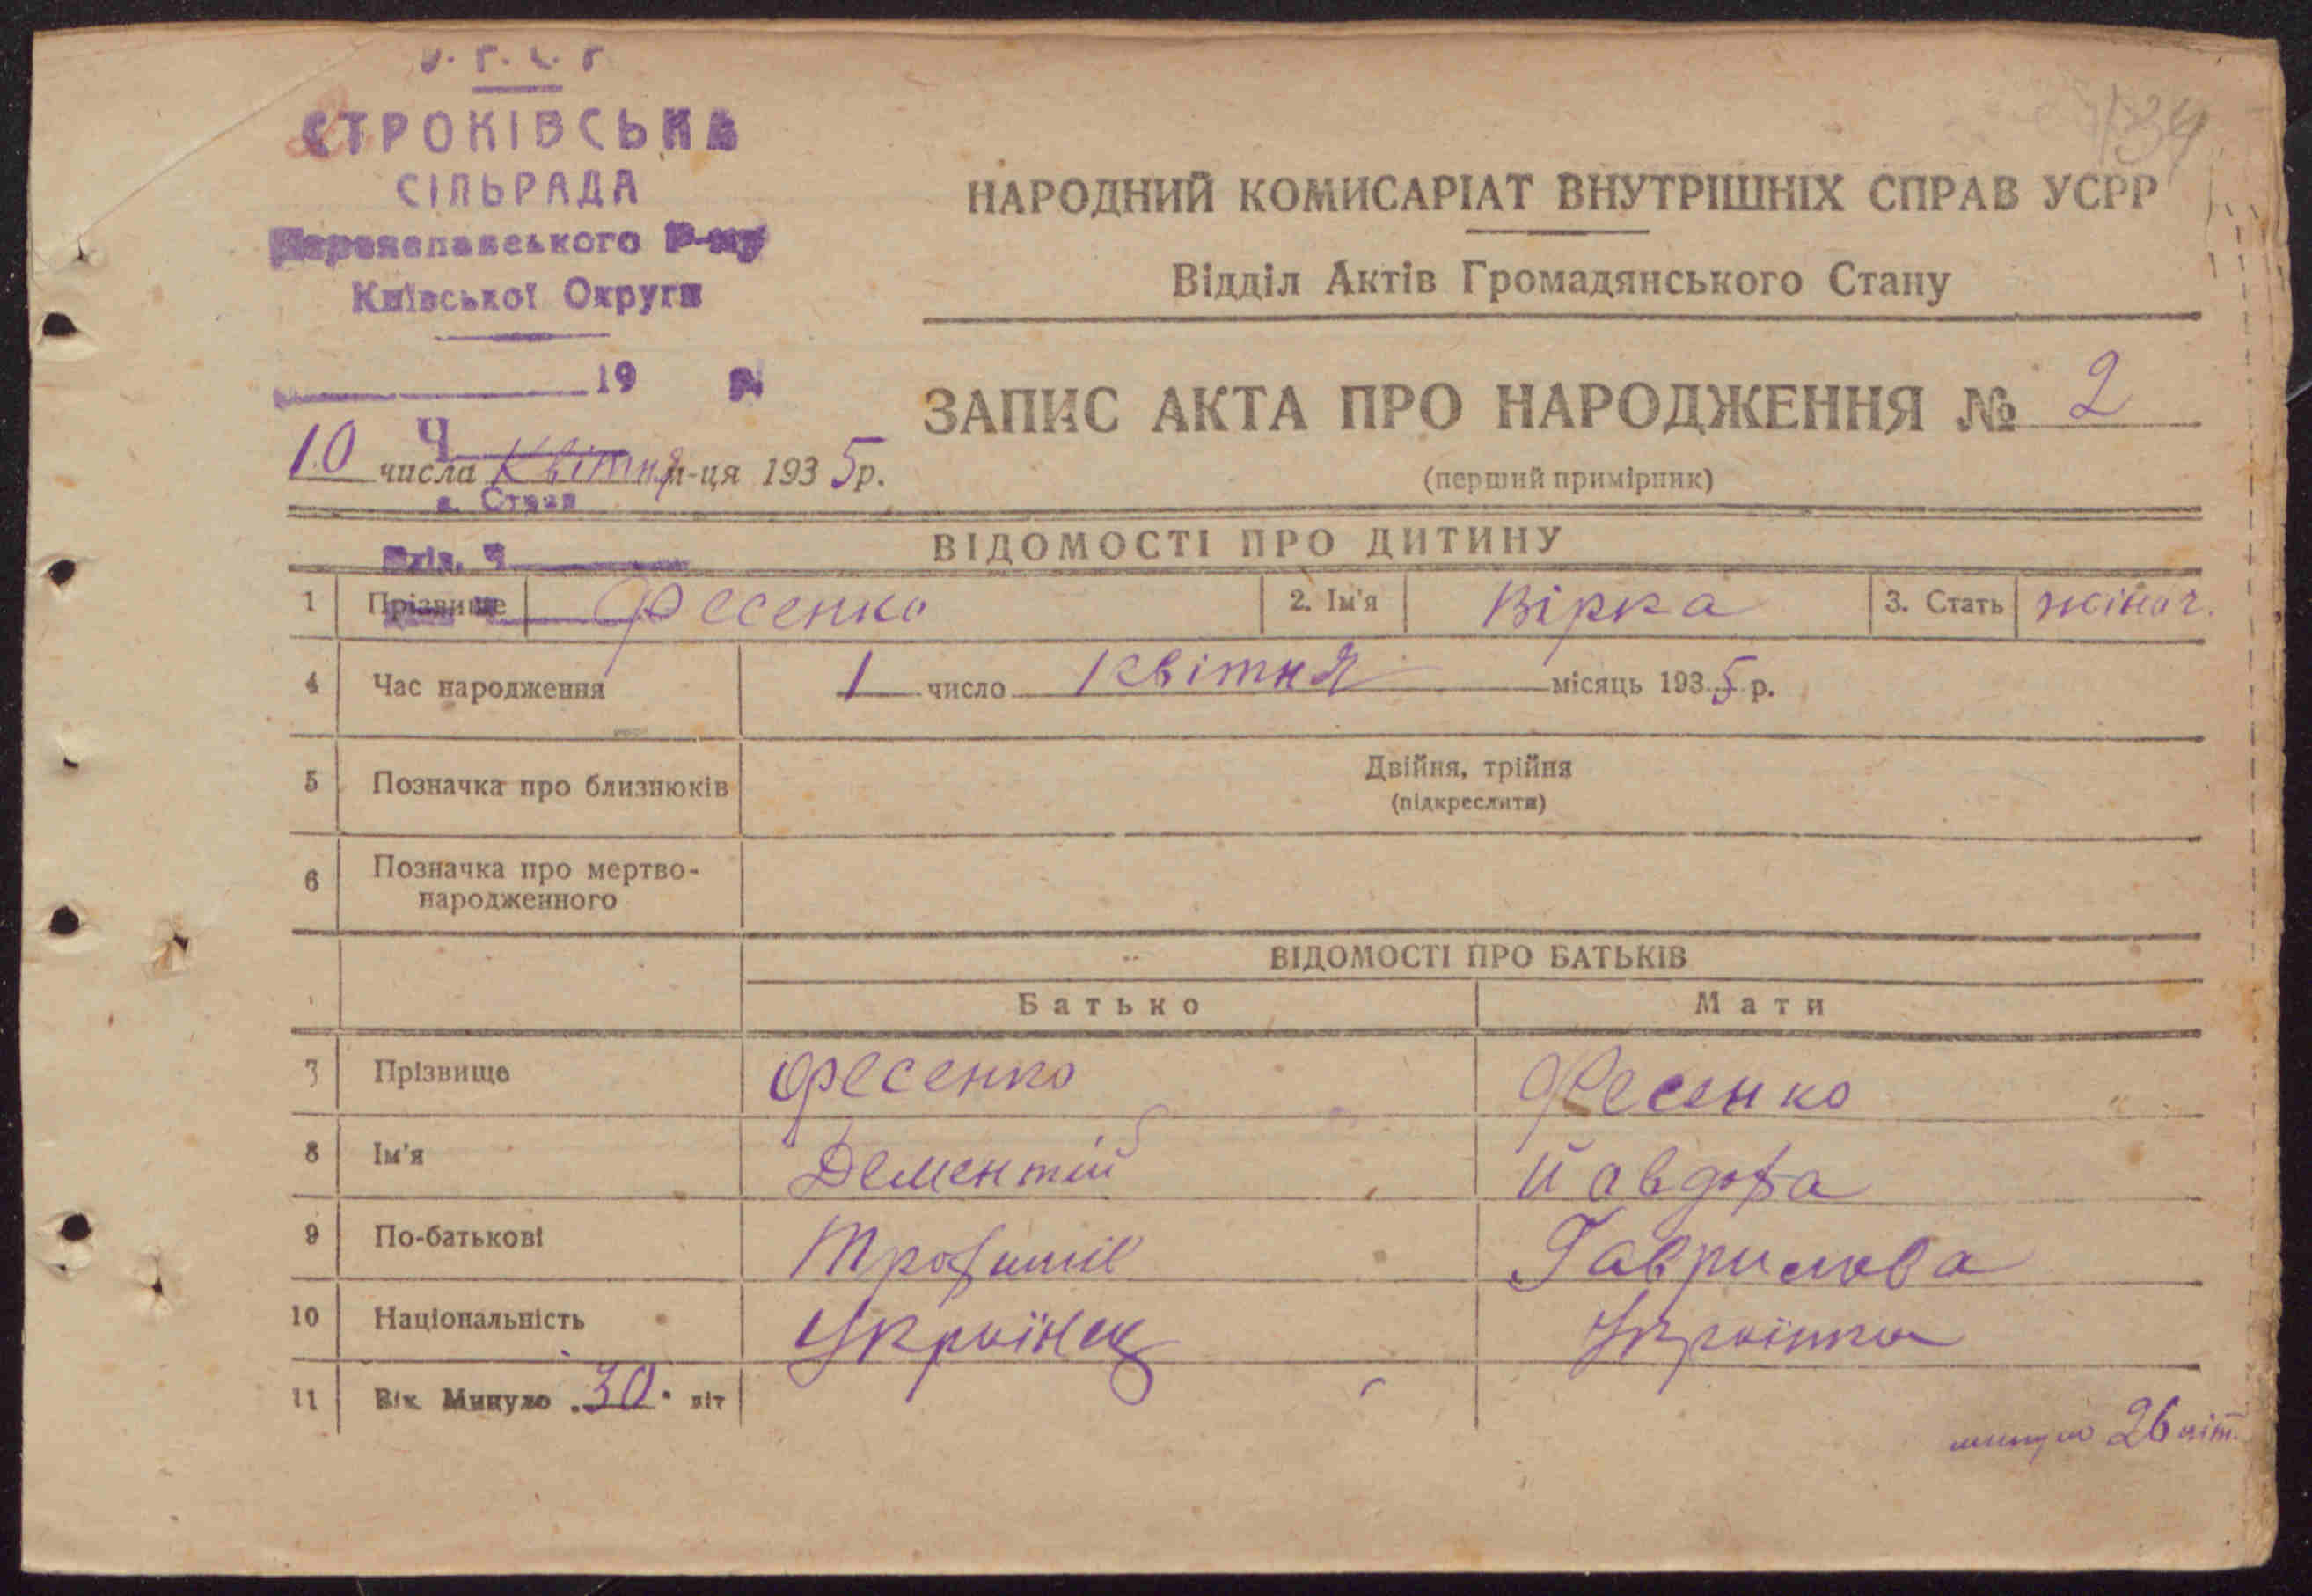 СТРОКІВСЬКА
СІЛЬРАДА
Переяславського Р-ну
Київської Округи
19
Ч
10 числа Квітня м-ця 1935 р.
134
НАРОДНИЙ КОМИСАРІАТ ВНУТРІШНІХ СПРАВ УСРР
Відділ Актів Громадянського Стану
ЗАПИС АКТА ПРО НАРОДЖЕННЯ № 2
(перший примірник)
ВІДОМОСТІ ПРО ДИТИНУ
1 Прізвище Фесенко 2. Ім'я Вірка 3. Стать жіноч.
4 Час народження 1 число Квітня місяць 1935 р.
5 Позначка про близнюків Двійня, трійня
(підкреслити)
6 Позначка про мертво-
народженного
ВІДОМОСТІ ПРО БАТЬКІВ
Батько Мати
7 Прізвище Фесенко Фесенко
8 Ім'я Дементій Йавдоха
9 По-батькові Трофимів Гаврилова
10 Національність Українец Українка
11 Вік Минуло 30 літ
минуло 26 літ.